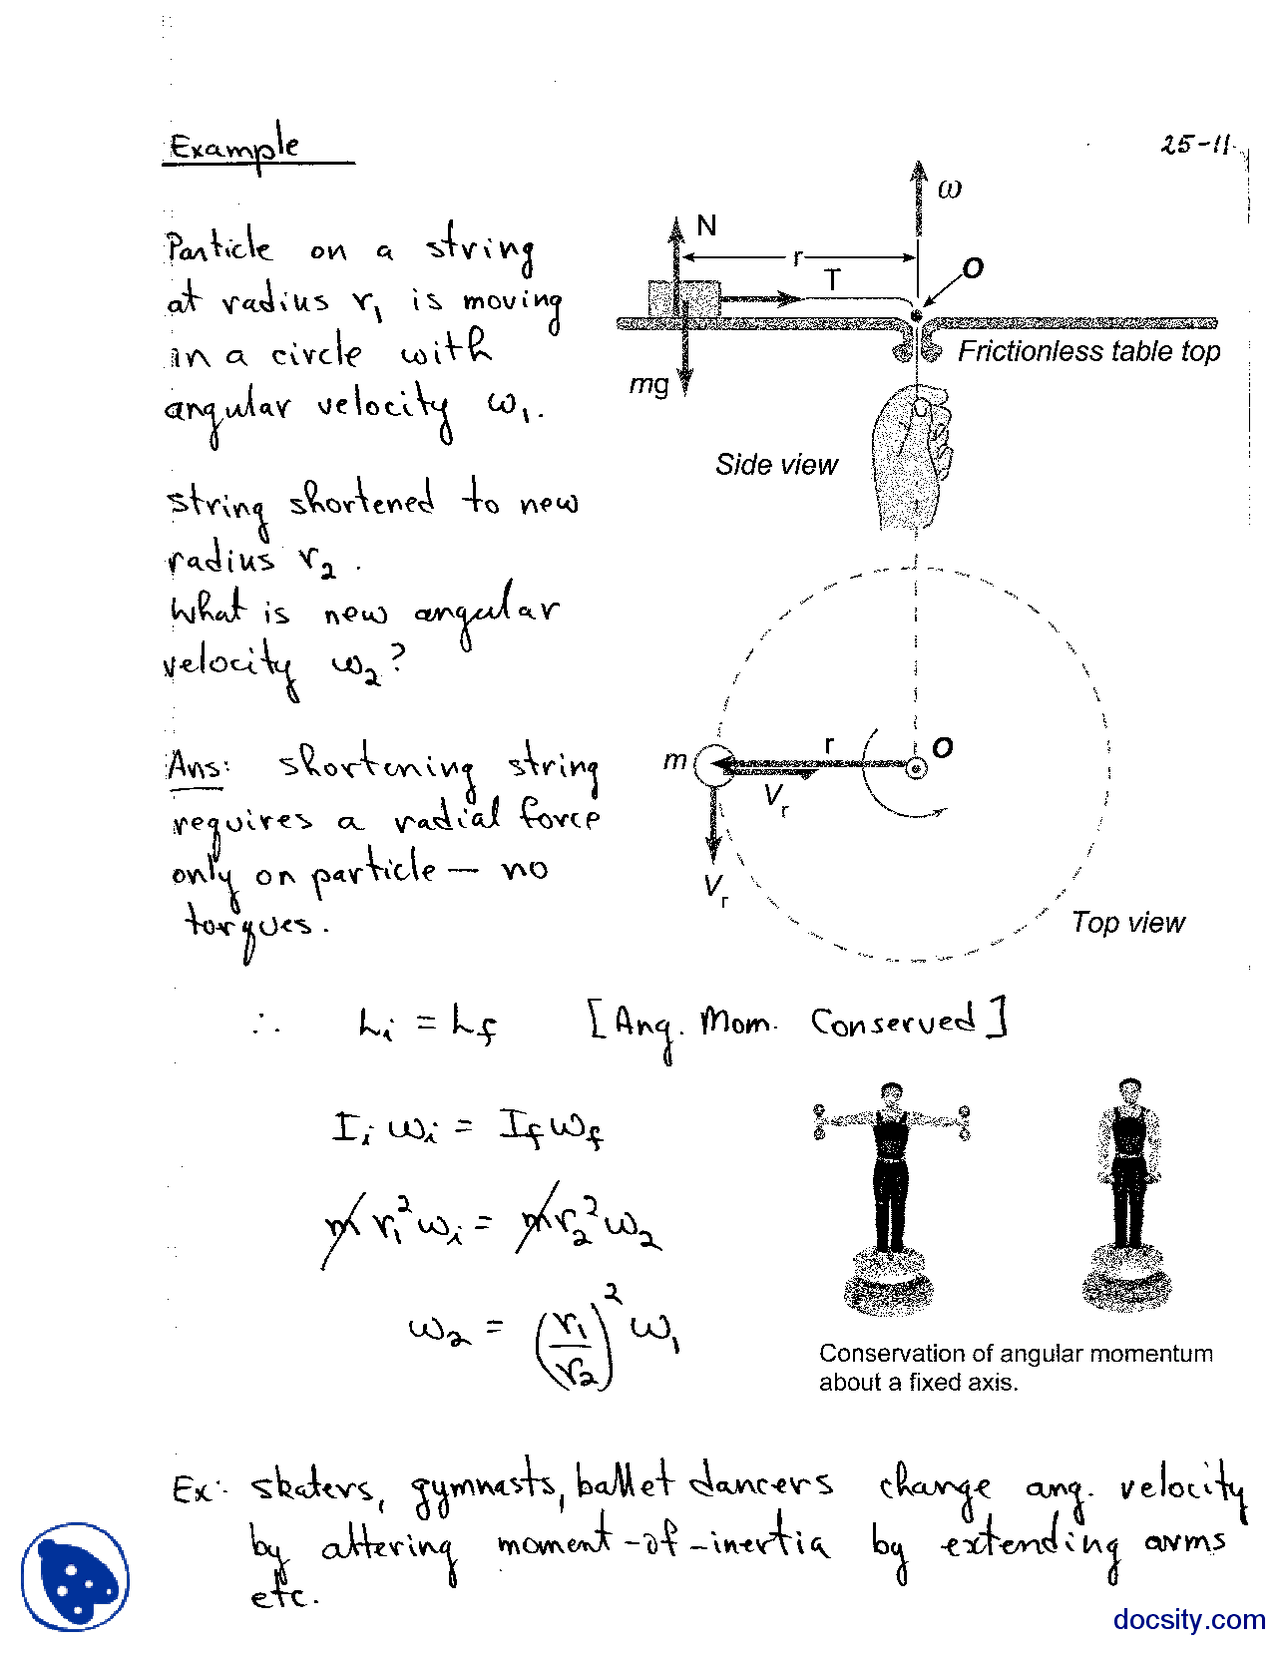 Example
25-11
Particle on a string
at radius r₁ is moving
in a circle with
angular velocity ω₁.
string shortened to new
radius r₂.
What is new angular
velocity ω₂?
Ans: shortening string
requires a radial force
only on particle — no
torques.
ω
N
r
T
O
mg
Frictionless table top
Side view
m
r
O
Vr
Vr
Top view
∴ Li = Lf [Ang. Mom. Conserved]
Ii ωi = If ωf
m r₁² ωi = m r₂² ω₂
ω₂ = (r₁/r₂)² ω₁
Conservation of angular momentum
about a fixed axis.
Ex: skaters, gymnasts, ballet dancers change ang. velocity
by altering moment-of-inertia by extending arms
etc.
docsity.com